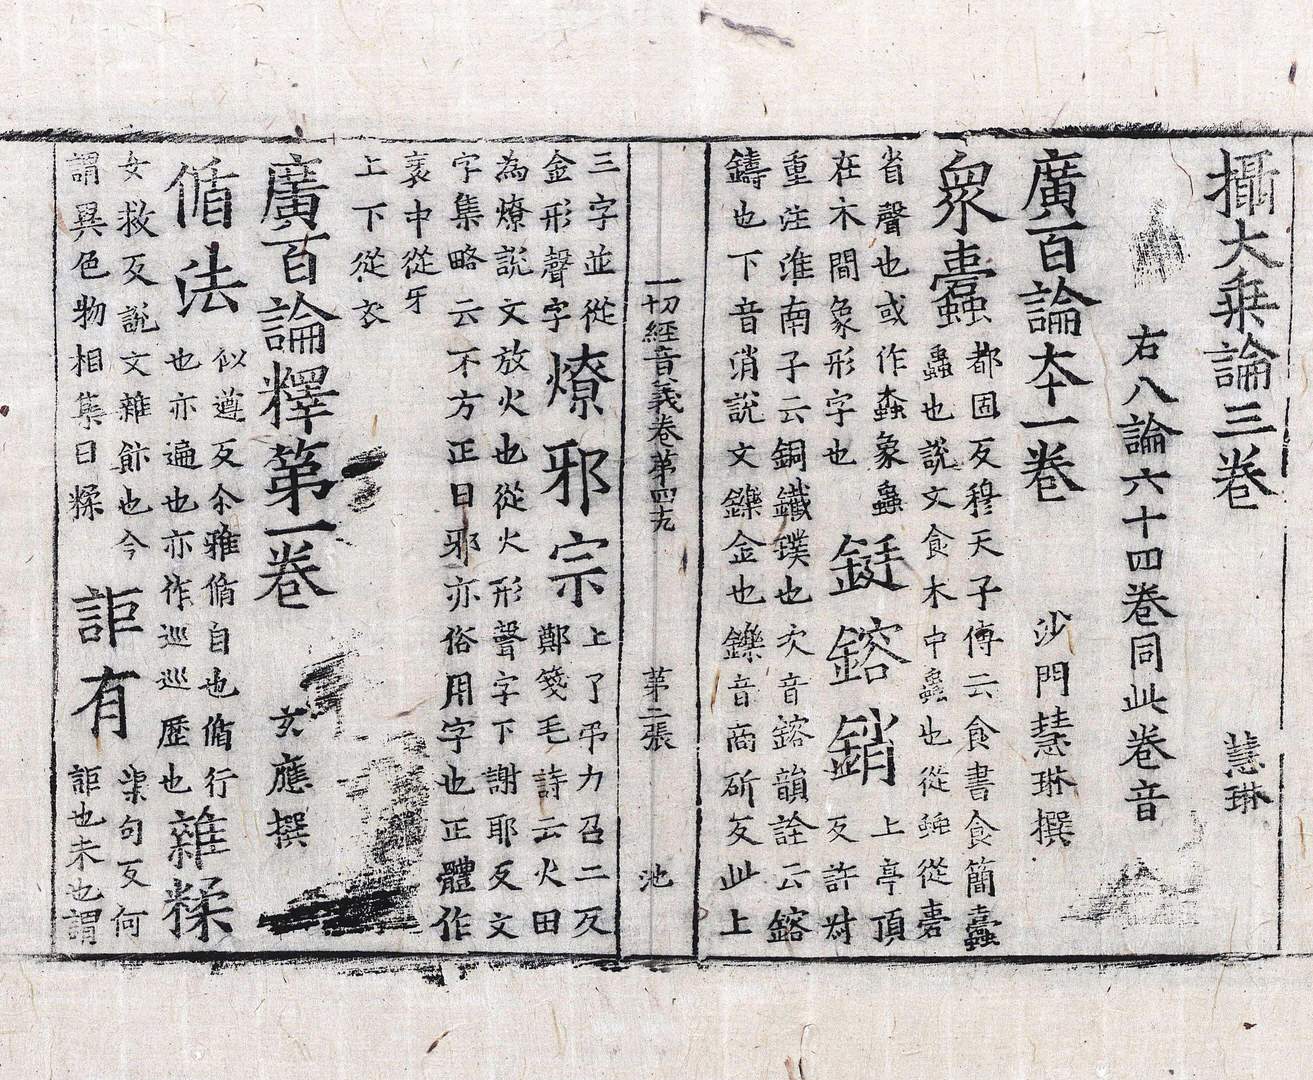 攝大乗論三卷 慧琳
右八論六十四卷同此卷音
廣百論夲一卷 沙門慧琳撰
衆蠧 都固反穆天子傳云食書食簡蠧
蟲也說文食木中蟲也從䖵從橐
省聲也或作螙象蟲
在木間象形字也 鋌鎔銷 上亭頂
反許对
重注淮南子云銅鐵璞也次音鎔韻詮云鎔
鑄也下音消說文鑠金也鑠音商斫反此上
一切經音義卷第四十九 第二張 池
三字並從
金形聲字 燎邪宗 上了弔力召二反
鄭箋毛詩云火田
為燎說文放火也從火形聲字下謝耶反文
字集略云不方正曰邪亦俗用字也正體作
衺中從牙
上下從衣
廣百論釋第一卷 玄應撰
循法 似遵反尒雅循自也循行
也亦遍也亦作巡巡歷也 雜糅
女救反說文雜飰也今
謂異色物相集曰糅 詎有 渠句反何
詎也未也謂